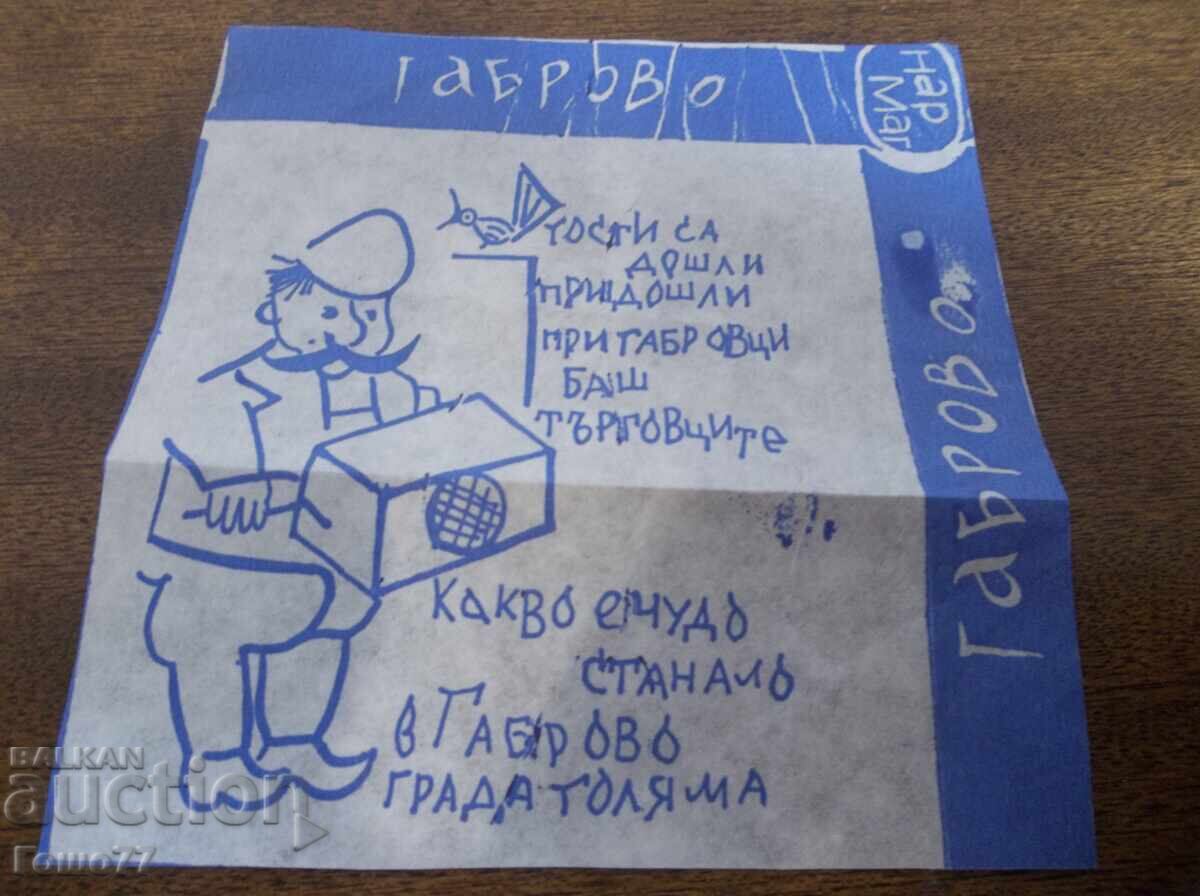 ГАБРОВО
Нар
Маг
ГОСТИ СА
ДОШЛИ
ПРИДОШЛИ
ПРИ ГАБРОВЦИ
БАШ
ТЪРГОВЦИТЕ
ГАБРОВО
КАКВО Е ЧУДО
СТАНАЛО
В ГАБРОВО
ГРАДА ГОЛЯМА
BALKAN
auction
Гошо77